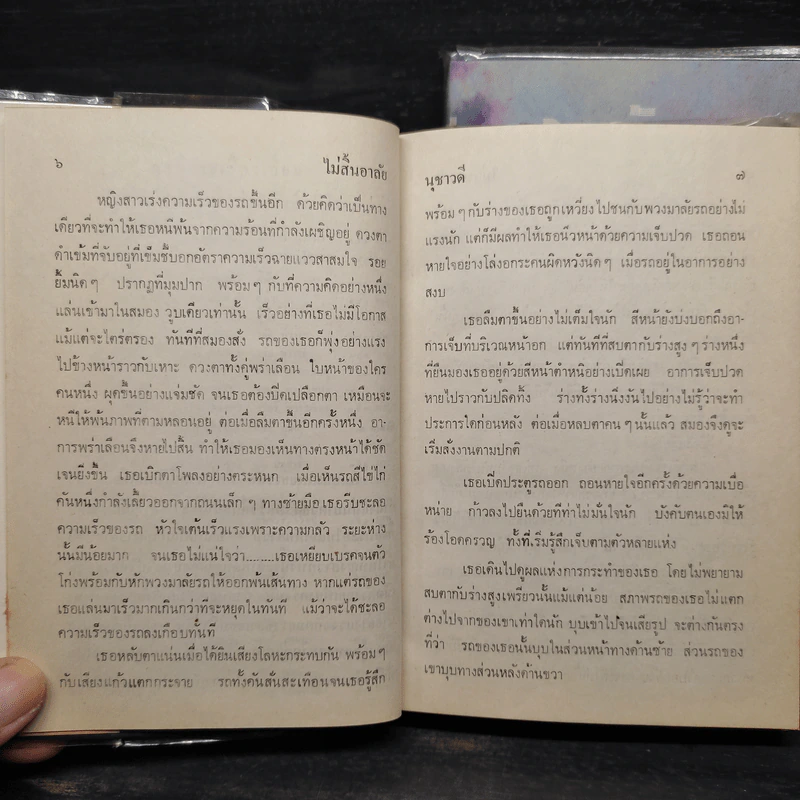 ๖
ไม่สิ้นอาลัย
หญิงสาวเร่งความเร็วของรถขึ้นอีก ด้วยคิดว่าเป็นทาง
เดียวที่จะทำให้เธอหนีพ้นจากความร้อนที่กำลังเผชิญอยู่ ดวงตา
ดำเข้มที่จับอยู่ที่เข็มชี้บอกอัตราความเร็วฉายแววสาสมใจ รอย
ยิ้มนิดๆ ปรากฏที่มุมปาก พร้อมๆ กับที่ความคิดอย่างหนึ่ง
แล่นเข้ามาในสมอง วูบเดียวเท่านั้น เร็วอย่างที่เธอไม่มีโอกาส
แม้แต่จะไตร่ตรอง ทันทีที่สมองสั่ง รถของเธอก็พุ่งอย่างแรง
ไปข้างหน้าราวกับเหาะ ดวงตาทั้งคู่พร่าเลือน ใบหน้าของใคร
คนหนึ่ง ผุดขึ้นอย่างแจ่มชัด จนเธอต้องปิดเปลือกตา เหมือนจะ
หนีให้พ้นภาพที่ตามหลอนอยู่ ต่อเมื่อลืมตาขึ้นอีกครั้งหนึ่ง อา-
การพร่าเลือนจึงหายไปสิ้น ทำให้เธอมองเห็นทางตรงหน้าได้ชัด
เจนยิ่งขึ้น เธอเบิกตาโพลงอย่างตระหนก เมื่อเห็นรถสีไข่ไก่
คันหนึ่งกำลังเลี้ยวออกจากถนนเล็ก ๆ ทางซ้ายมือ เธอรีบชะลอ
ความเร็วของรถ หัวใจเต้นเร็วแรงเพราะความกลัว ระยะห่าง
นั้นมีน้อยมาก จนเธอไม่แน่ใจว่า........เธอเหยียบเบรคจนตัว
โก่งพร้อมกับหักพวงมาลัยรถให้ออกพ้นเส้นทาง หากแต่รถของ
เธอแล่นมาเร็วมากเกินกว่าที่จะหยุดในทันที แม้ว่าจะได้ชะลอ
ความเร็วของรถลงเกือบทันที
เธอหลับตาแน่นเมื่อได้ยินเสียงโลหะกระทบกัน พร้อมๆ
กับเสียงแก้วแตกกระจาย รถทั้งคันสั่นสะเทือนจนเธอรู้สึก
นุชาวดี
๗
พร้อม ๆ กับร่างของเธอถูกเหวี่ยงไปชนกับพวงมาลัยรถอย่างไม่
แรงนัก แต่ก็มีผลทำให้เธอนิ่วหน้าด้วยความเจ็บปวด เธอถอน
หายใจอย่างโล่งอกระคนผิดหวังนิดๆ เมื่อรถอยู่ในอาการอย่าง
สงบ
เธอลืมตาขึ้นอย่างไม่เต็มใจนัก สีหน้ายังบ่งบอกถึงอา-
การเจ็บที่บริเวณหน้าอก แต่ทันทีที่สบตากับร่างสูงๆ ร่างหนึ่ง
ที่ยืนมองเธออยู่ด้วยสีหน้าตำหนิอย่างเปิดเผย อาการเจ็บปวด
หายไปราวกับปลิดทิ้ง ร่างทั้งร่างนิ่งงันไปอย่างไม่รู้ว่าจะทำ
ประการใดก่อนหลัง ต่อเมื่อหลบตาคน ๆ นั้นแล้ว สมองจึงดูจะ
เริ่มสั่งงานตามปกติ
เธอเปิดประตูรถออก ถอนหายใจอีกครั้งด้วยความเบื่อ
หน่าย ก้าวลงไปยืนด้วยทีท่าไม่มั่นใจนัก บังคับตนเองมิให้
ร้องโอดครวญ ทั้งที่เริ่มรู้สึกเจ็บตามตัวหลายแห่ง
เธอเดินไปดูผลแห่งการกระทำของเธอ โดยไม่พยายาม
สบตากับร่างสูงเพรียวนั้นแม้แต่น้อย สภาพรถของเธอไม่แตก
ต่างไปจากของเขาเท่าใดนัก บุบเข้าไปจนเสียรูป จะต่างกันตรง
ที่ว่า รถของเธอนั้นบุบในส่วนหน้าทางด้านซ้าย ส่วนรถของ
เขาบุบทางส่วนหลังด้านขวา